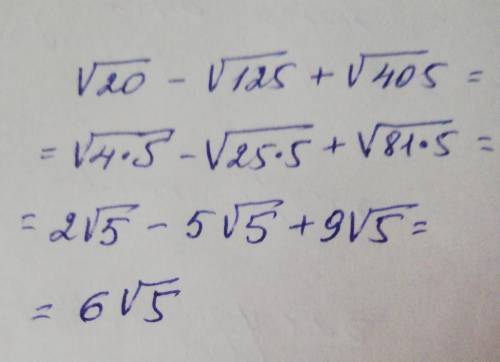 √20 - √125 + √405 =
= √4·5 - √25·5 + √81·5 =
= 2√5 - 5√5 + 9√5 =
= 6√5